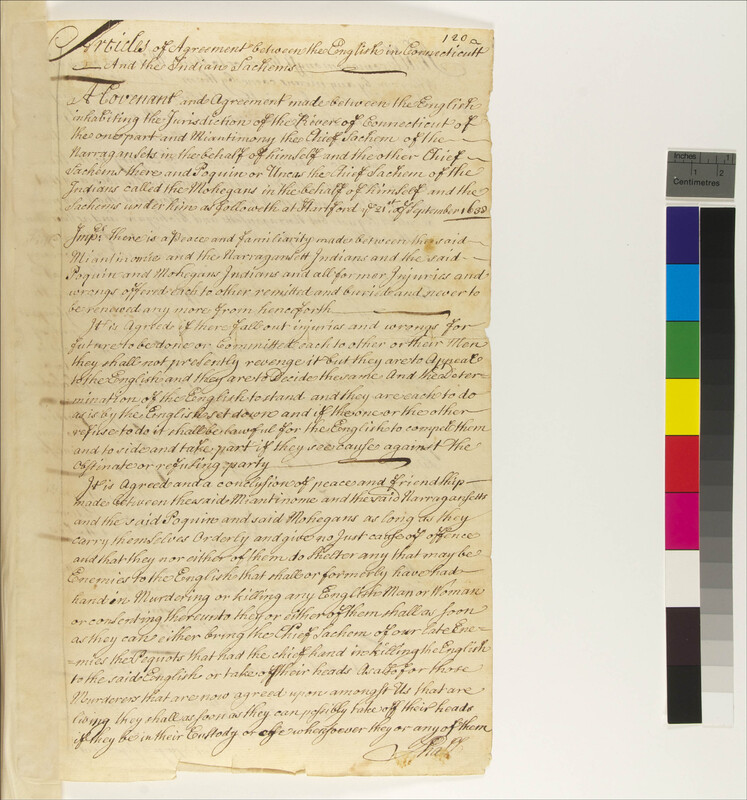 120
Articles of Agreement between the English in Connecticutt
And the Indian Sachems
A Covenant and Agreement made between the English
inhabiting the Jurisdiction of the River of Connecticut of
the one part and Miantimony the Chief Sachem of the
Narragansets in the behalf of himself and the other Chief
Sachems there and Poquin or Uncas the Chief Sachem of the
Indians called the Mohegans in the behalf of himself and the
Sachems under him as followeth at Hartford ye 21st of September 1638
Imps There is a Peace and familiarity made between the said
Miantinomie and the Narragansett Indians and the said
Poquin and Mohegans Indians and all former Injuries and
wrongs offered each to other remitted and buried and never to
be renewed any more from henceforth
It is Agreed if there fall out injuries and wrongs for
future to be done or Committed each to other or their Men
they shall not presently revenge it but they are to Appeal
to the English and they are to Decide the same And the Deter=
mination of the English to stand and they are each to do
as is by the English set down and if the one or the other
refuse to do it shall be lawful for the English to compel them
and to side and take part if they see cause against the
obstinate or refusing party
It is Agreed and a conclusion of peace and friendship
made between the said Miantinome and the said Narragansetts
and the said Poquin and said Mohegans as long as they
carry themselves Orderly and give no just cause of offence
and that they nor either of them do Shelter any that may be
Enemies to the English that shall or formerly have had
hand in Murdering or killing any English Man or Woman
or consenting thereunto they or either of them shall as soon
as they can either bring the Chief Sachem of our late Ene=
=mies the Pequots that had the chief hand in killing the English
to the said English or take of their heads As also for those
Murderers that are now agreed upon amongst Us that are
living they shall as soon as they can possibly take off their heads
if they be in their Custody or else whersoever they or any of them
Shall
Inches
1
2
Centimetres